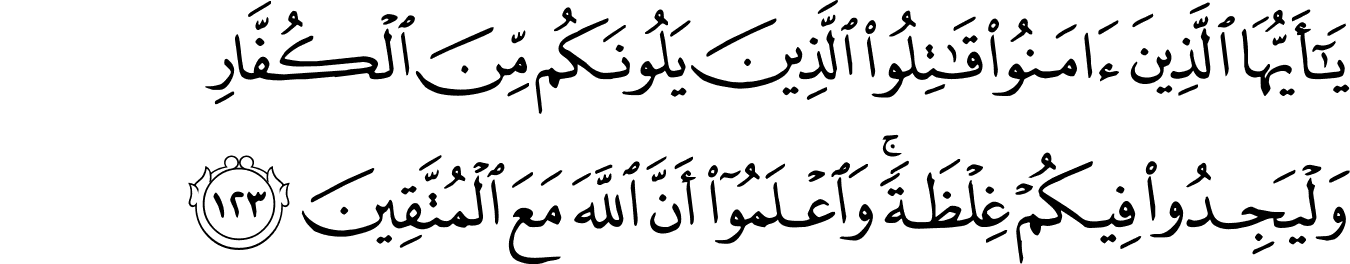 يَٰٓأَيُّهَا ٱلَّذِينَ ءَامَنُوا۟ قَٰتِلُوا۟ ٱلَّذِينَ يَلُونَكُم مِّنَ ٱلْكُفَّارِ
وَلْيَجِدُوا۟ فِيكُمْ غِلْظَةً ۚ وَٱعْلَمُوٓا۟ أَنَّ ٱللَّهَ مَعَ ٱلْمُتَّقِينَ ١٢٣